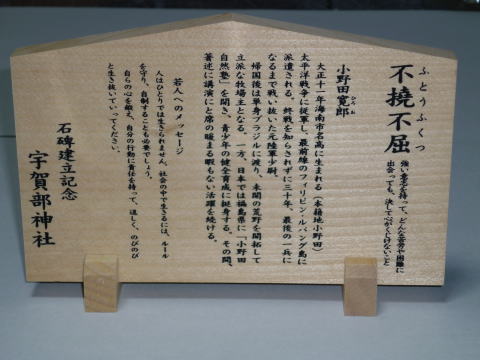 ふとうふくつ
不撓不屈
強い意志を持って、どんな苦労や困難に
出会っても、決して心がくじけないこと
小野田寛郎
ひろ お
大正十一年海南市名高に生まれる（本籍地小野田）
太平洋戦争に従軍し、最前線のフィリピン・ルバング島に
派遣される。終戦を知らされずに三十年、最後の一兵に
なるまで戦い抜いた元陸軍少尉。
帰国後は単身ブラジルに渡り、未開の荒野を開拓して
立派な牧場主となる。一方、日本では福島県に「小野田
自然塾」を開き、青少年の健全育成に挺身する。その間、
著述に講演にと席の暖まる暇もない活躍を続ける。
若人へのメッセージ
人はひとりでは生きられません。社会の中で生きるには、ルール
を守り、自制することも必要でしょう。
自らの心を鍛え、自分の行動に責任を持って、逞しく、のびのび
と生き抜いていってください。
石碑建立記念
宇賀部神社